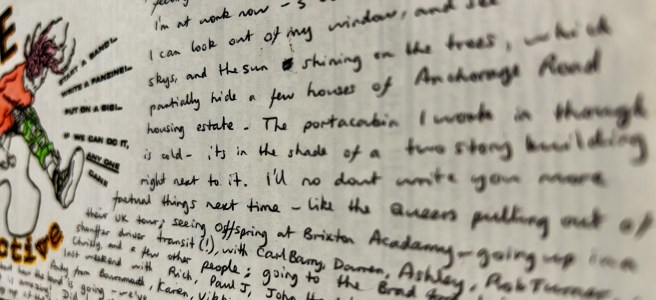 feeling
I'm at work now - 3
I can look out of my window, and see
skys, and the sun shining on the trees, which
partially hide a few houses of Anchorage Road
housing estate - The portacabin I work in though
is cold - it's in the shade of a two story building
right next to it. I'll no dont write you more
factual things next time - like the Queers pulling out of
their UK tour; seeing Offspring at Brixton Acadamy - going up in a
driver transit (!), with Carl Barry, Damen, Ashley, Rob Turner,
Christy, and a few other people; going to the Brad
last weekend with Rich, Paul J, John
from Bournemouth, Karen,
band is going - we've
is amazing! Did
E
START A BAND!...
WRITE A FANZINE!...
PUT ON A GIG!...
IF WE CAN DO IT,
ANY ONE
CAN!!
ctive